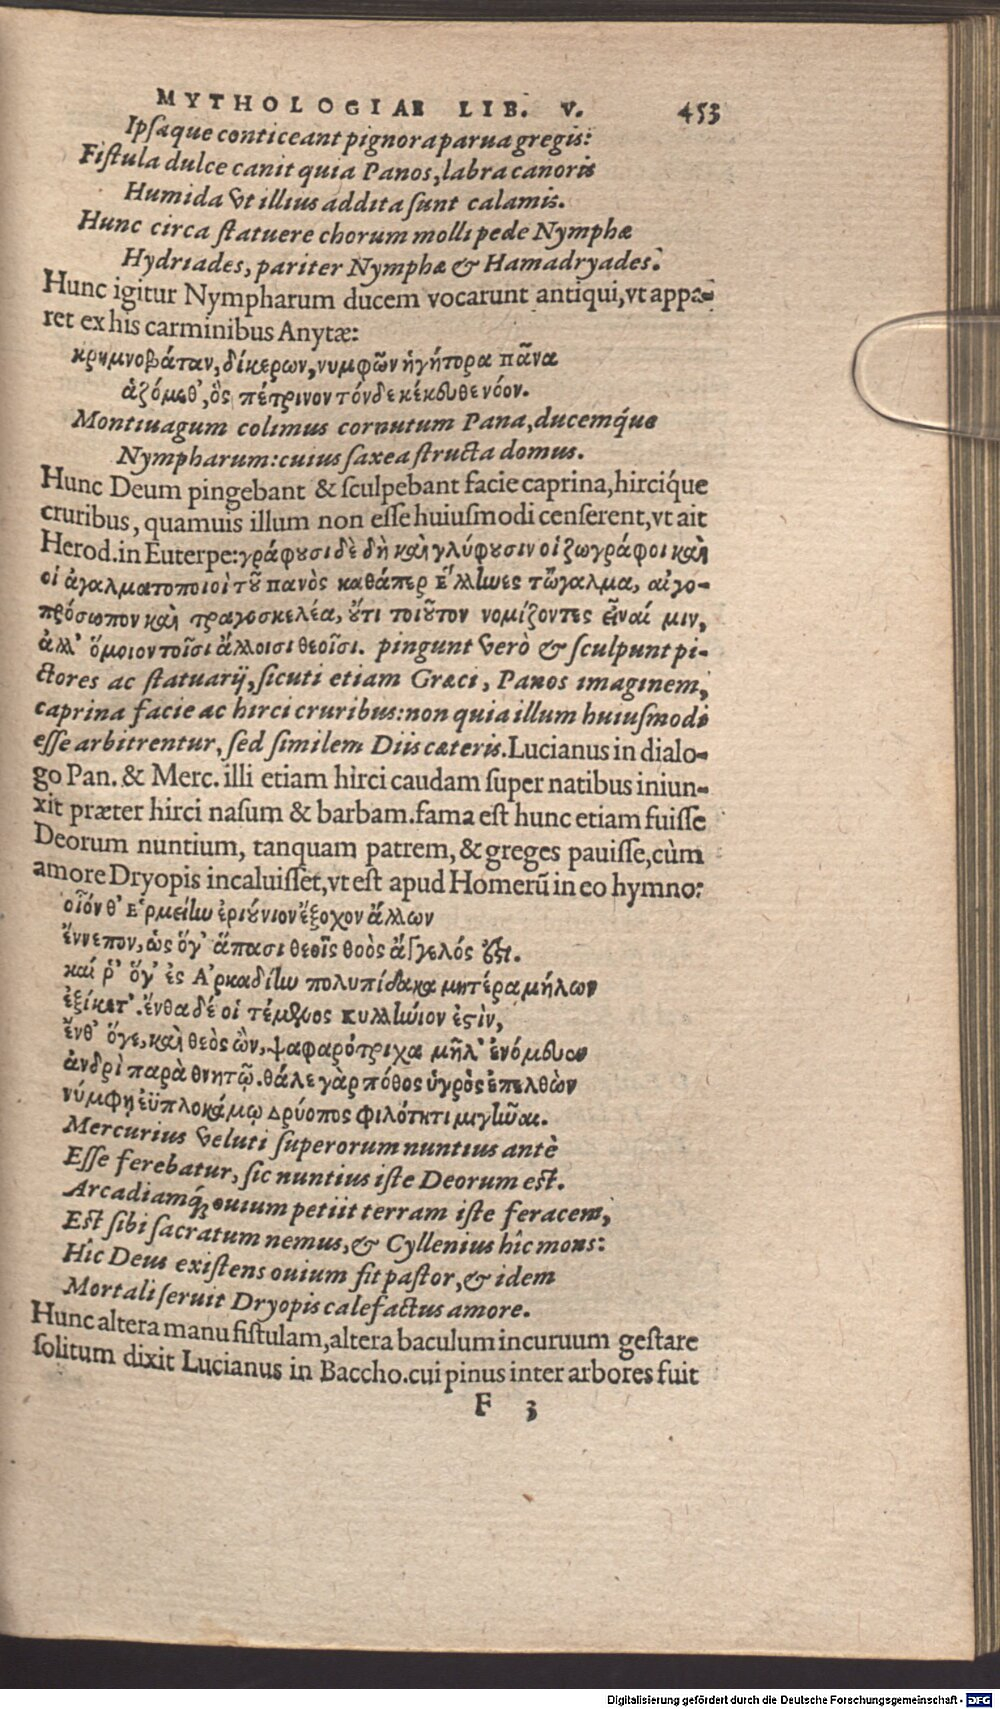 MYTHOLOGIAE LIB. V. 453
Ipsaque conticeant pignora parua gregis:
Fistula dulce canit quia Panos, labra canoris
Humida vt illius addita sunt calamis.
Hunc circa statuere chorum molli pede Nymphæ
Hydriades, pariter Nymphæ & Hamadryades.
Hunc igitur Nympharum ducem vocarunt antiqui, vt appa-
ret ex his carminibus Anytæ:
κρημνοβάταν, δίκερων, νυμφῶν ἡγήτορα πᾶνα
ἁζόμεθ', ὃς πέτρινον τόνδε κέκευθε νόον.
Montiuagum colimus cornutum Pana, ducemq́ue
Nympharum: cuius saxea structa domus.
Hunc Deum pingebant & sculpebant facie caprina, hirciq́ue
cruribus, quamuis illum non esse huiusmodi censerent, vt ait
Herod. in Euterpe: γράφουσι δὲ δὴ καὶ γλύφουσιν οἱ ζωγράφοι καὶ
οἱ ἀγαλματοποιοὶ τοῦ πανὸς καθάπερ Ἕλληνες τὤγαλμα, αἰγο-
πρόσωπον καὶ τραγοσκελέα, οὔτι τοιοῦτον νομίζοντες εἶναί μιν,
ἀλλ' ὅμοιον τοῖσι ἄλλοισι θεοῖσι. pingunt verò & sculpunt pi-
ctores ac statuarij, sicuti etiam Græci, Panos imaginem,
caprina facie ac hirci cruribus: non quia illum huiusmodi
esse arbitrentur, sed similem Diis cæteris. Lucianus in dialo-
go Pan. & Merc. illi etiam hirci caudam super natibus iniun-
xit præter hirci nasum & barbam. fama est hunc etiam fuisse
Deorum nuntium, tanquam patrem, & greges pauisse, cùm
amore Dryopis incaluisset, vt est apud Homerū in eo hymno:
οἷόν θ' Ἑρμείην ἐριούνιον ἔξοχον ἄλλων
ἔννεπον, ὡς ὅγ' ἅπασι θεοῖς θοὸς ἄγγελός ἐστι.
καί ῥ' ὅγ' ἐς Ἀρκαδίην πολυπίδακα μητέρα μήλων
ἐξίκετ'. ἔνθα δέ οἱ τέμενος κυλλήνιον ἐστὶν,
ἔνθ' ὅγε, καὶ θεὸς ὢν, ψαφαρότριχα μῆλ' ἐνόμευεν
ἀνδρὶ παρὰ θνητῷ. θάλε γὰρ πόθος ὑγρὸς ἐπελθὼν
νύμφῃ ἐϋπλοκάμῳ Δρύοπος φιλότητι μιγῆναι.
Mercurius veluti superorum nuntius antè
Esse ferebatur, sic nuntius iste Deorum est.
Arcadiamq́; ouium petiit terram iste feracem,
Est sibi sacratum nemus, & Cyllenius hîc mons:
Hîc Deus existens ouium fit pastor, & idem
Mortali seruit Dryopis calefactus amore.
Hunc altera manu fistulam, altera baculum incuruum gestare
solitum dixit Lucianus in Baccho. cui pinus inter arbores fuit
F 3
Digitalisierung gefördert durch die Deutsche Forschungsgemeinschaft - DFG